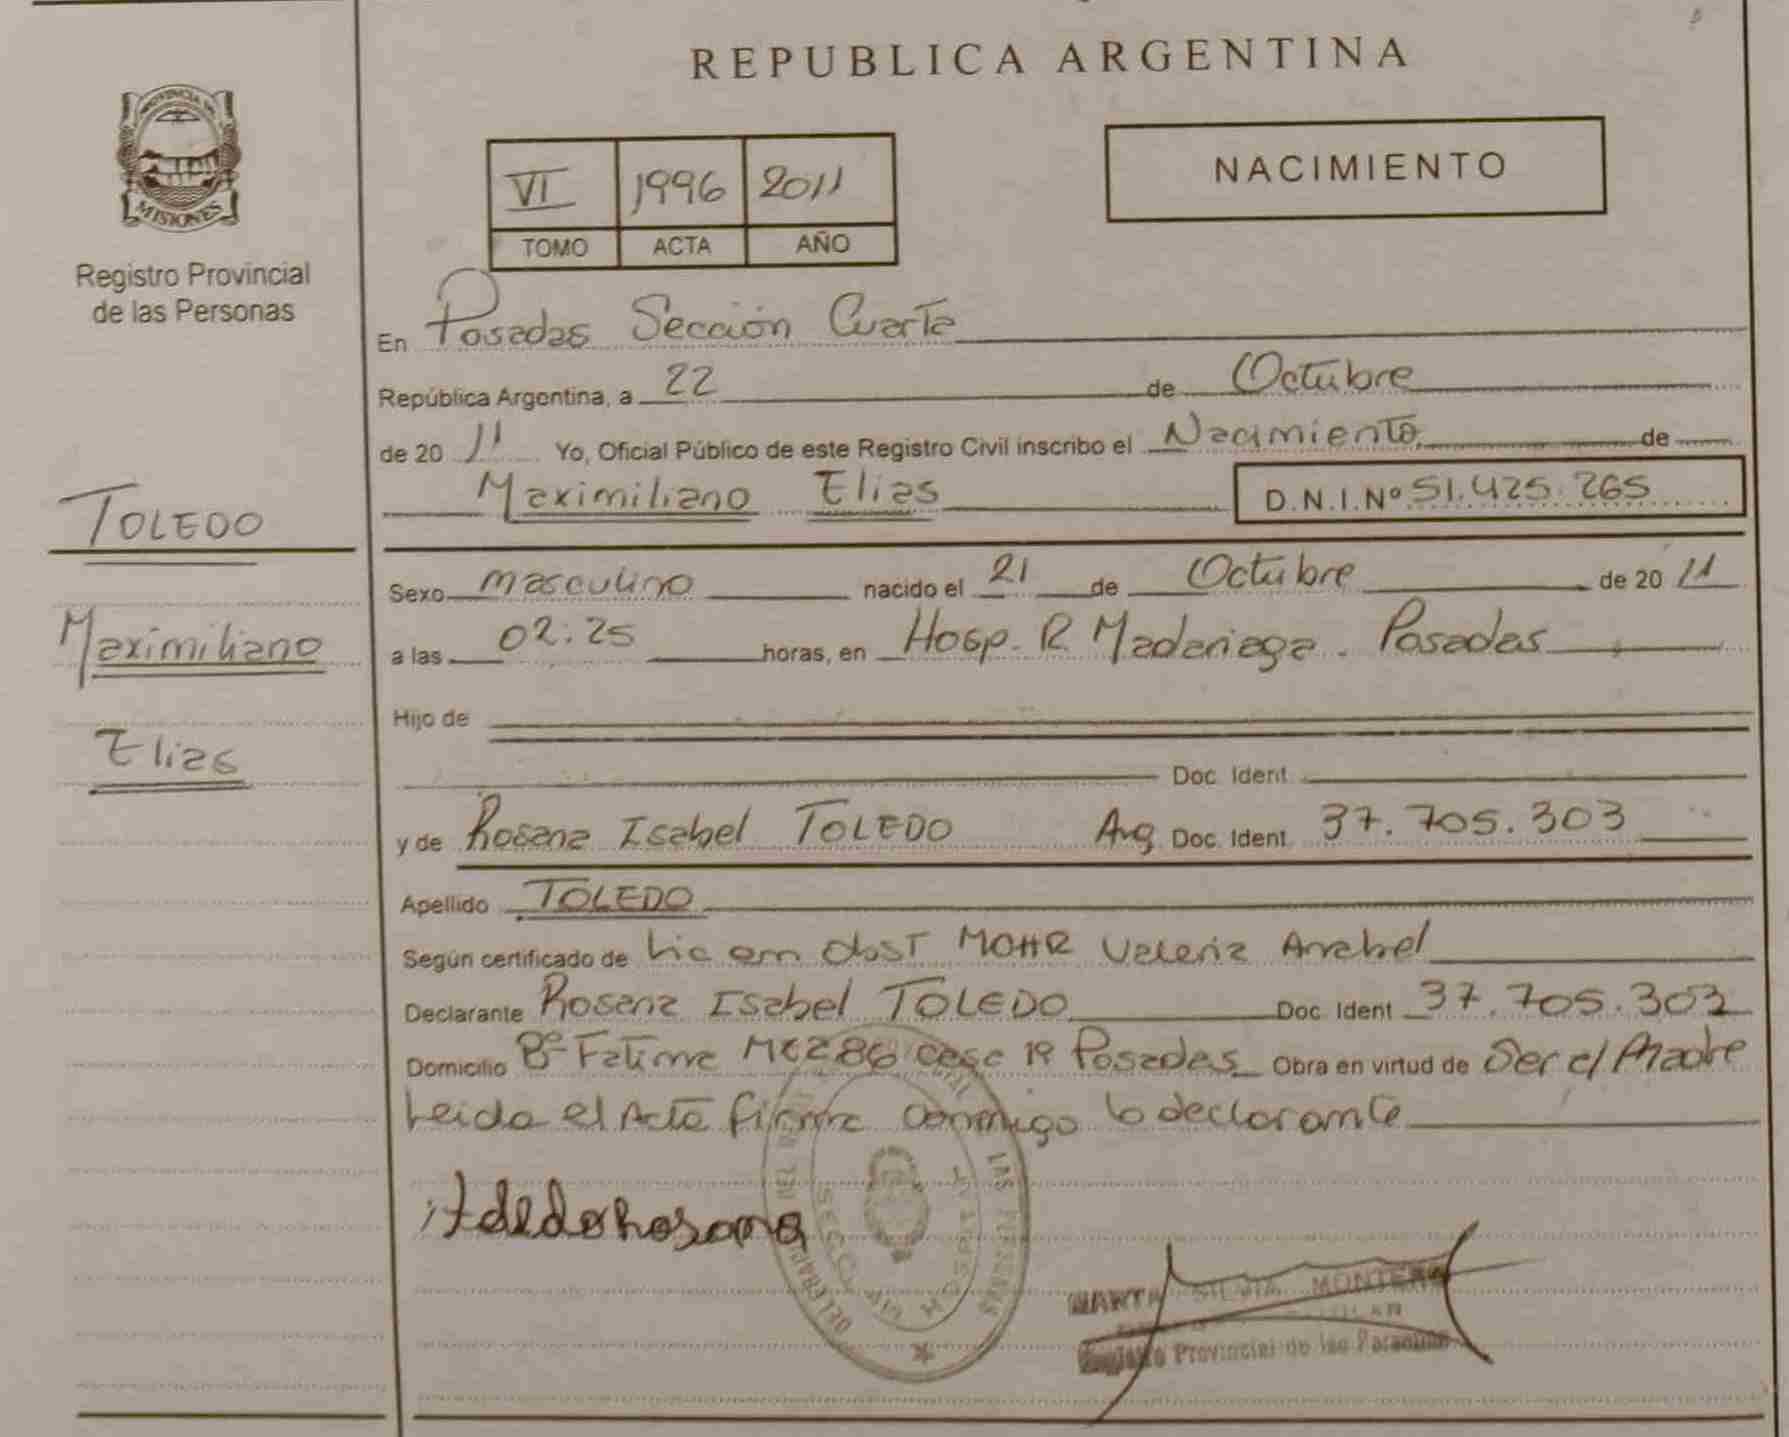 REPUBLICA ARGENTINA
PROVINCIA DE
MISIONES
Registro Provincial
de las Personas
VI 1996 2011
TOMO ACTA AÑO
NACIMIENTO
En Posadas Sección Cuarta
República Argentina, a 22 de Octubre
de 20 11 Yo, Oficial Público de este Registro Civil inscribo el Nacimiento de
Maximiliano Elias D.N.I.Nº 51.425.265
TOLEDO
Maximiliano
Elias
Sexo masculino nacido el 21 de Octubre de 20 11
a las 02:25 horas, en Hosp. R Madariaga. Posadas
Hijo de
Doc. Ident.
y de Rosana Isabel TOLEDO Arg Doc. Ident. 37.705.303
Apellido TOLEDO
Según certificado de Lic en obst MOHR Valeria Anabel
Declarante Rosana Isabel TOLEDO Doc. Ident 37.705.303
Domicilio Bº Fatima Mz 286 casa 19 Posadas Obra en virtud de Ser el Madre
Leida el Acta firma conmigo lo declarante
toledo Rosana
LAS PERSONAS
HOSPITAL
SECCION
MARTA SILVIA MONTERO
Registro Provincial de las Personas